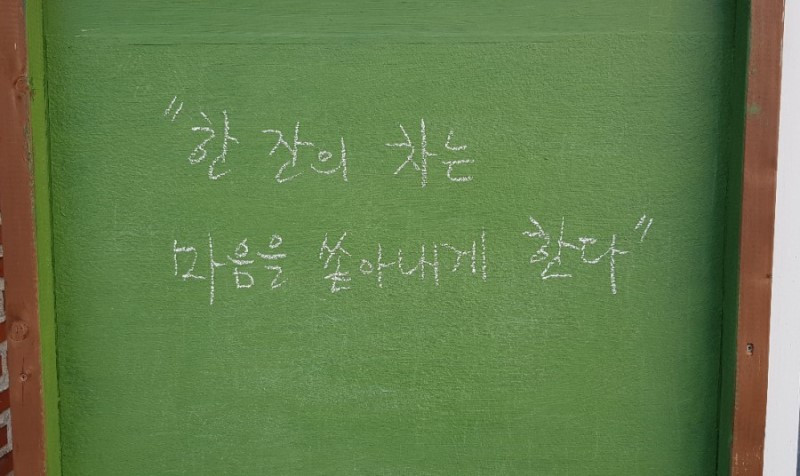 "한 잔의 차는
마음을 쏟아내게 한다"